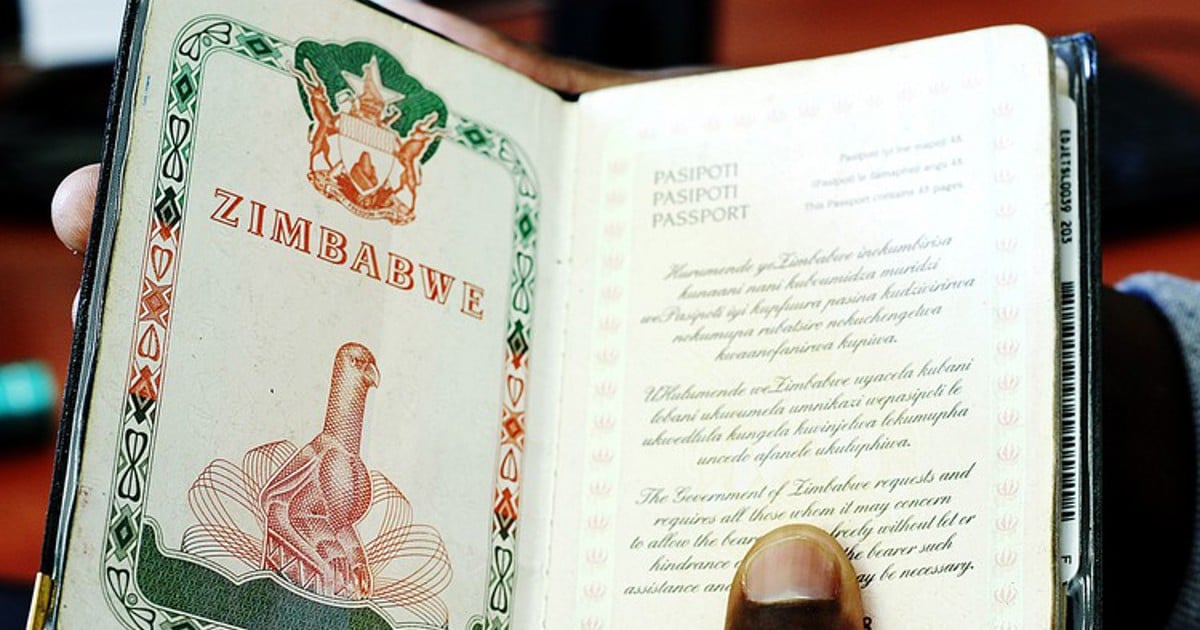 ZIMBABWE
PASIPOTI
PASIPOTI
PASSPORT
Pasipoti iyi ine mapeji 48
iPasipoti le ilamapheji angu 48
This Passport contains 48 pages
Hurumende yeZimbabwe inokumbirisa
kunaani nani kubvumidza muridzi
wePasipoti iyi kupfuura pasina kudzivirirwa
nokumupa rubatsiro nokuchengetwa
kwaanofanirwa kupiwa.
UHulumende weZimbabwe uyacela kubani
lobani ukuvumela umnikazi wepasipoti le
ukwedlula kungela kuvinjelwa lokumupha
uncedo afanele ukuluphiwa.
The Government of Zimbabwe requests and
requires all those whom it may concern
to allow the bear freely without let or
hindrance the bearer such
assistance an ay be necessary.
F